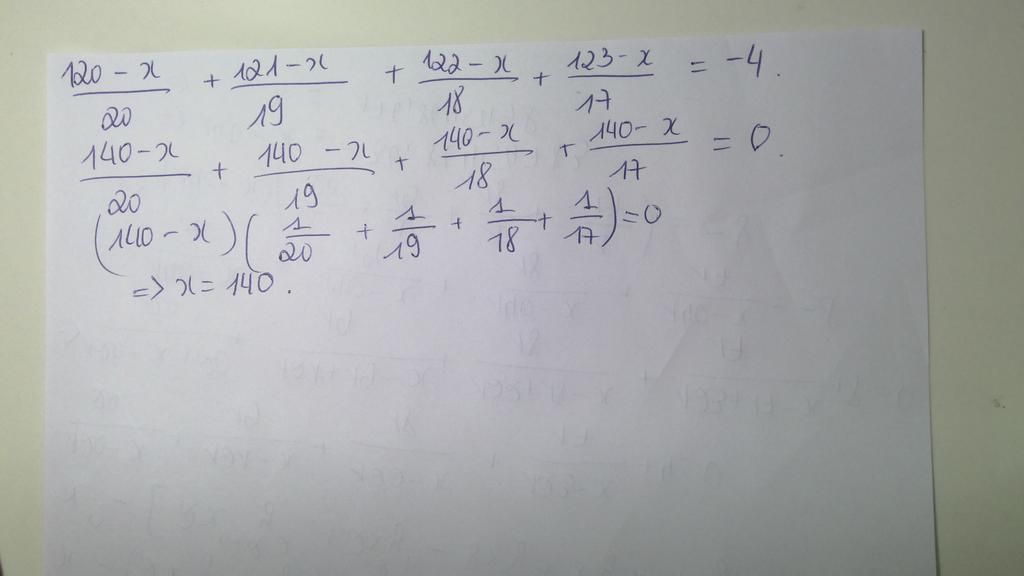 (120 - x)/20 + (121 - x)/19 + (122 - x)/18 + (123 - x)/17 = -4.
(140 - x)/20 + (140 - x)/19 + (140 - x)/18 + (140 - x)/17 = 0.
(140 - x)(1/20 + 1/19 + 1/18 + 1/17) = 0
=> x = 140.